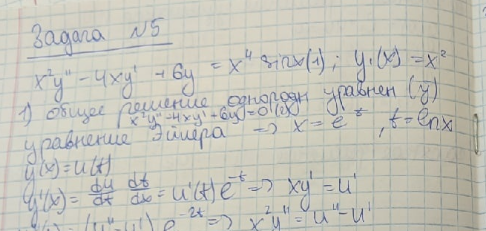 Задача №5
x²y'' - 4xy' + 6y = x⁴ sinx (1); y₁(x) = x²
1) общее решение однородн уравнен (ȳ)
x²y'' - 4xy' + 6y = 0 (2)
уравнение Эйлера => x = eᵗ, t = lnx
y(x) = u(t)
y'(x) = du/dt dt/dx = u'(t) e⁻ᵗ => xy' = u'
(u'' - u') e⁻²ᵗ => x²y'' = u'' - u'